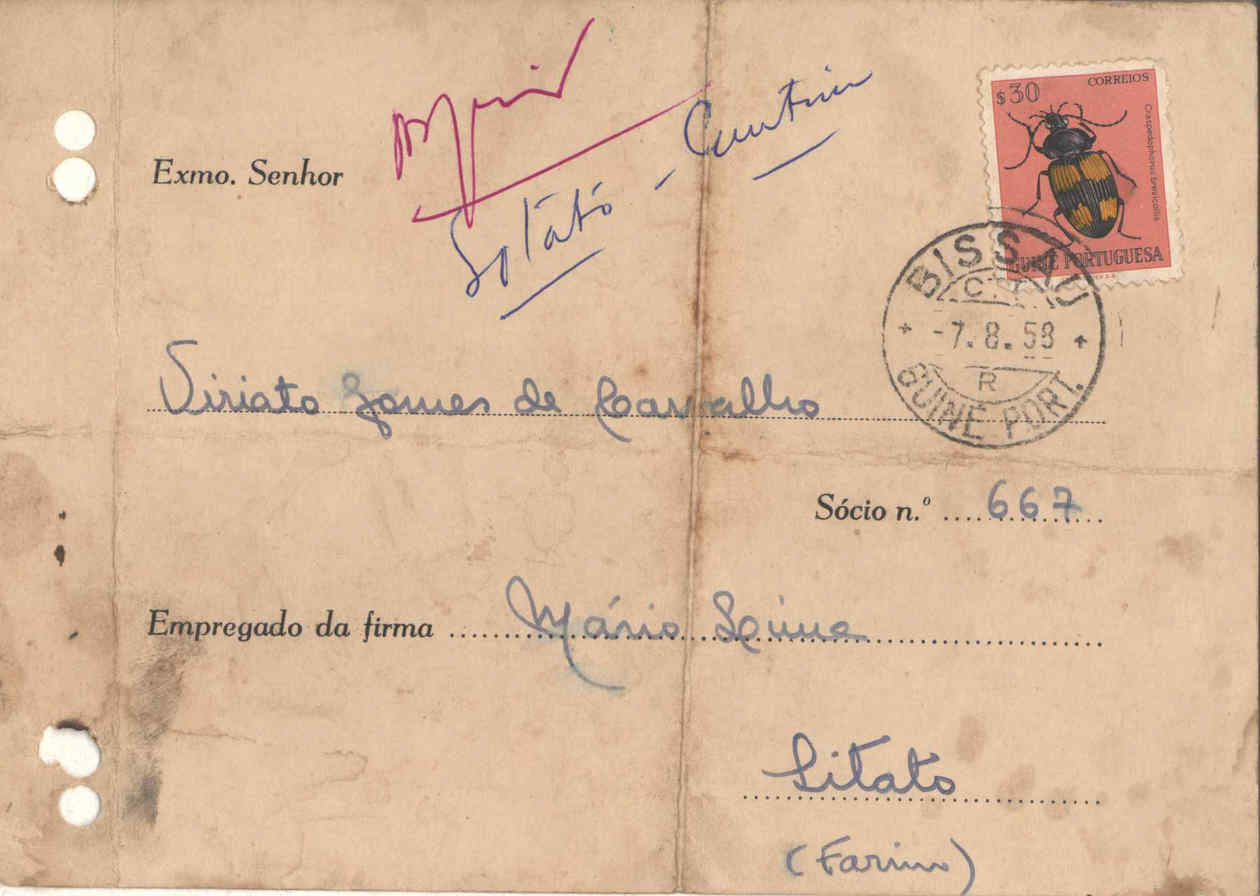 CORREIOS
$30
Craspedophorus brevicollis
GUINÉ PORTUGUESA
Exmo. Senhor
BISSAU
C.T.T.
-7.8.58
R
GUINÉ PORT.
Viriato Gomes de Carvalho
Sócio n.º 667
Empregado da firma Mário Lima
Sitató
(Farim)